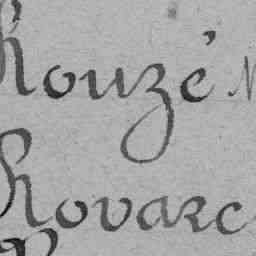 Rouzé
Rovarc